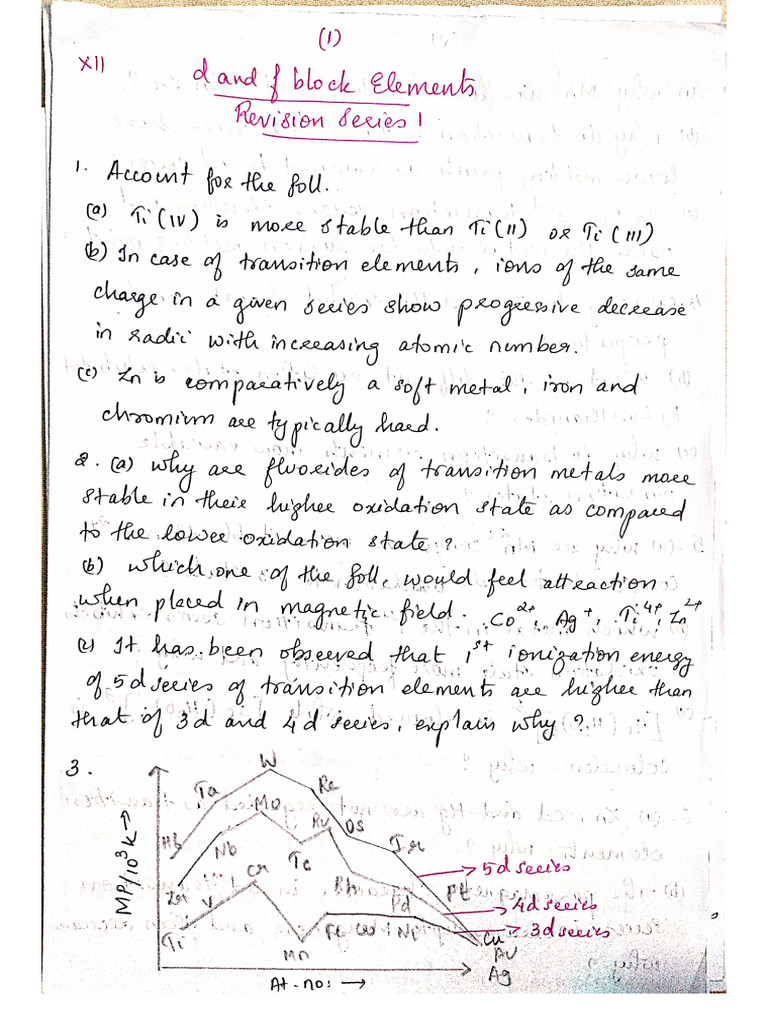 (1)
XII
d and f block Elements
Revision Series 1
1. Account for the foll.
(a) Ti(IV) is more stable than Ti(II) or Ti(III)
(b) In case of transition elements, ions of the same
charge in a given series show progressive decrease
in radii with increasing atomic number.
(c) Zn is comparatively a soft metal, iron and
chromium are typically hard.
2. (a) Why are fluorides of transition metals more
stable in their higher oxidation state as compared
to the lower oxidation state?
(b) which one of the foll. would feel attraction
when placed in magnetic field. Co²⁺, Ag⁺, Ti⁴⁺, Zn²⁺
(c) It has been observed that 1st ionization energy
of 5d series of transition elements are higher than
that of 3d and 4d series, explain why?
3.
W
Ta
Re
Mo
Ru
Os
Hf
Nb
Tc
Ir
Cr
5d series
Rh
Pt
Zr
V
Pd
4d series
Ti
Fe
Co
Ni
3d series
Mn
Cu
Au
Ag
MP/10³K →
At. no: →